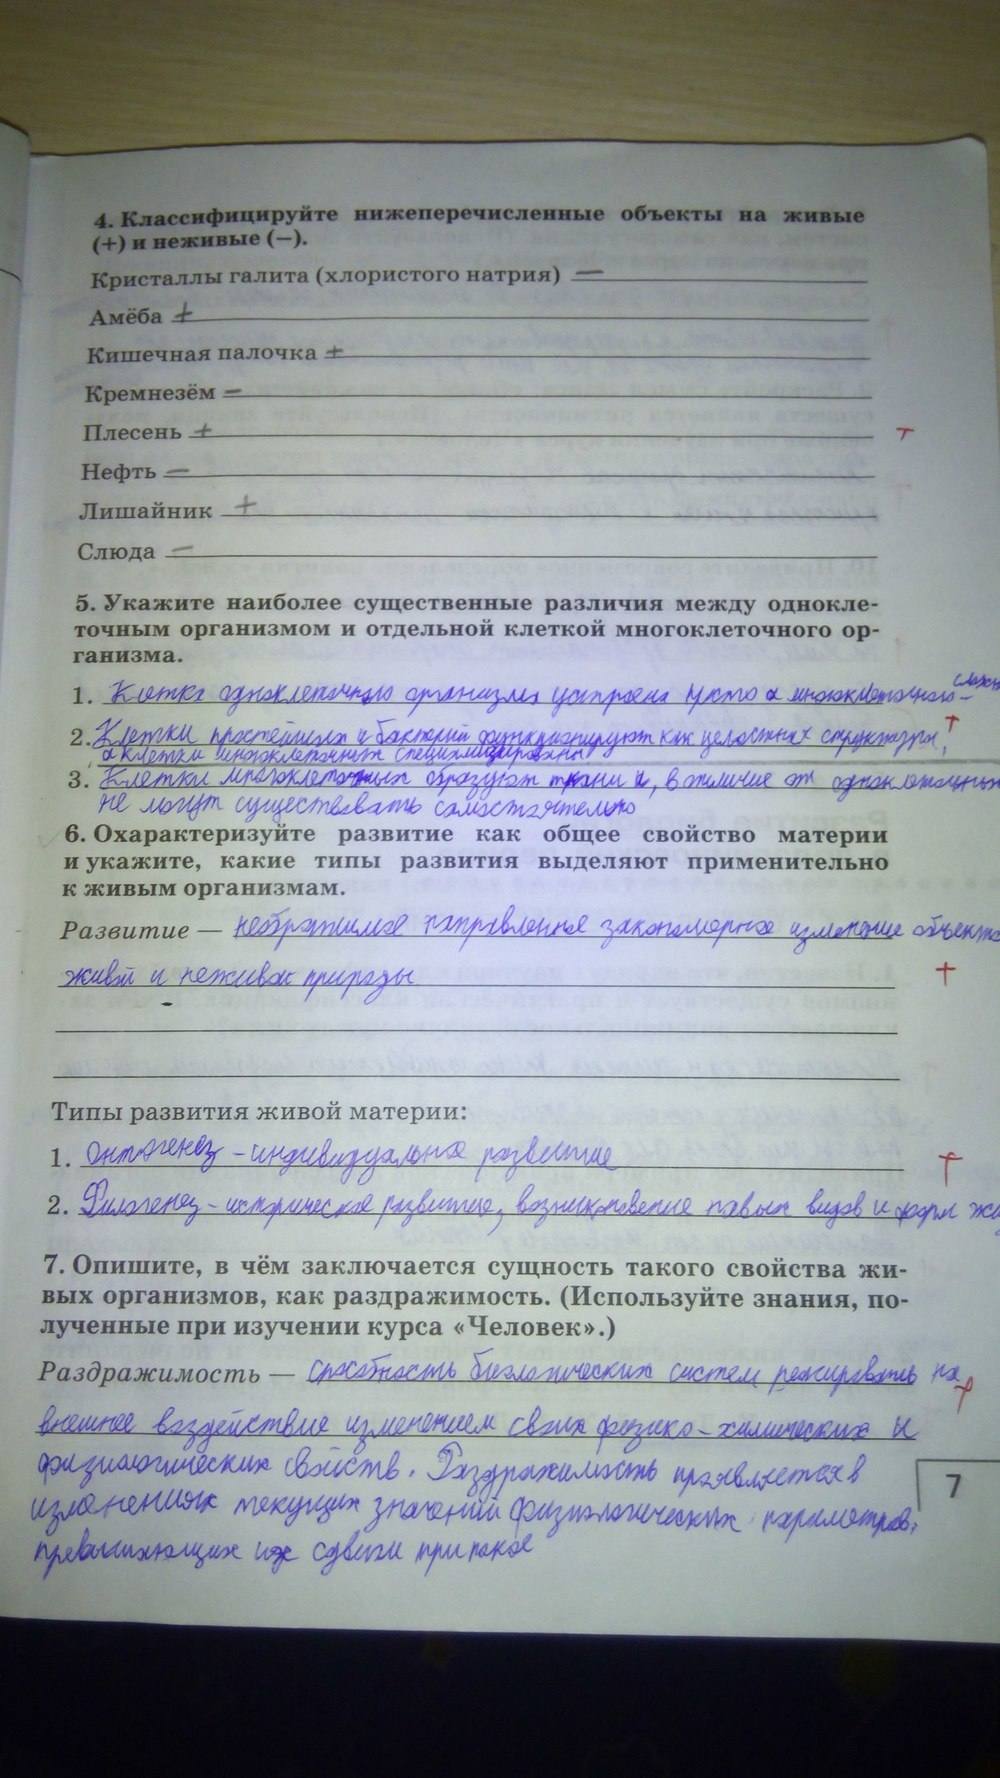 4. Классифицируйте нижеперечисленные объекты на живые
(+) и неживые (−).
Кристаллы галита (хлористого натрия) —
Амёба +
Кишечная палочка +
Кремнезём —
Плесень +
Нефть —
Лишайник +
Слюда —
5. Укажите наиболее существенные различия между однокле-
точным организмом и отдельной клеткой многоклеточного ор-
ганизма.
1. Клетка одноклеточного организма устроена просто а многоклеточного –
2. Клетки простейших и бактерий функционируют как целостных структуры,
а клетки многоклеточных специализированы
3. Клетки многоклеточных образуют ткани и, в отличие от одноклеточных
не могут существовать самостоятельно
6. Охарактеризуйте развитие как общее свойство материи
и укажите, какие типы развития выделяют применительно
к живым организмам.
Развитие — необратимое направленное закономерное изменение объекта
живой и неживой природы
Типы развития живой материи:
1. Онтогенез – индивидуальное развитие
2. Филогенез – историческое развитие, возникновение новых видов и форм
7. Опишите, в чём заключается сущность такого свойства жи-
вых организмов, как раздражимость. (Используйте знания, по-
лученные при изучении курса «Человек».)
Раздражимость — способность биологических систем реагировать на
внешнее воздействие изменением своих физико-химических и
физиологических свойств. Раздражимость проявляется в
изменениях текущих значений физиологических параметров,
превышающих их сдвиги при покое
7